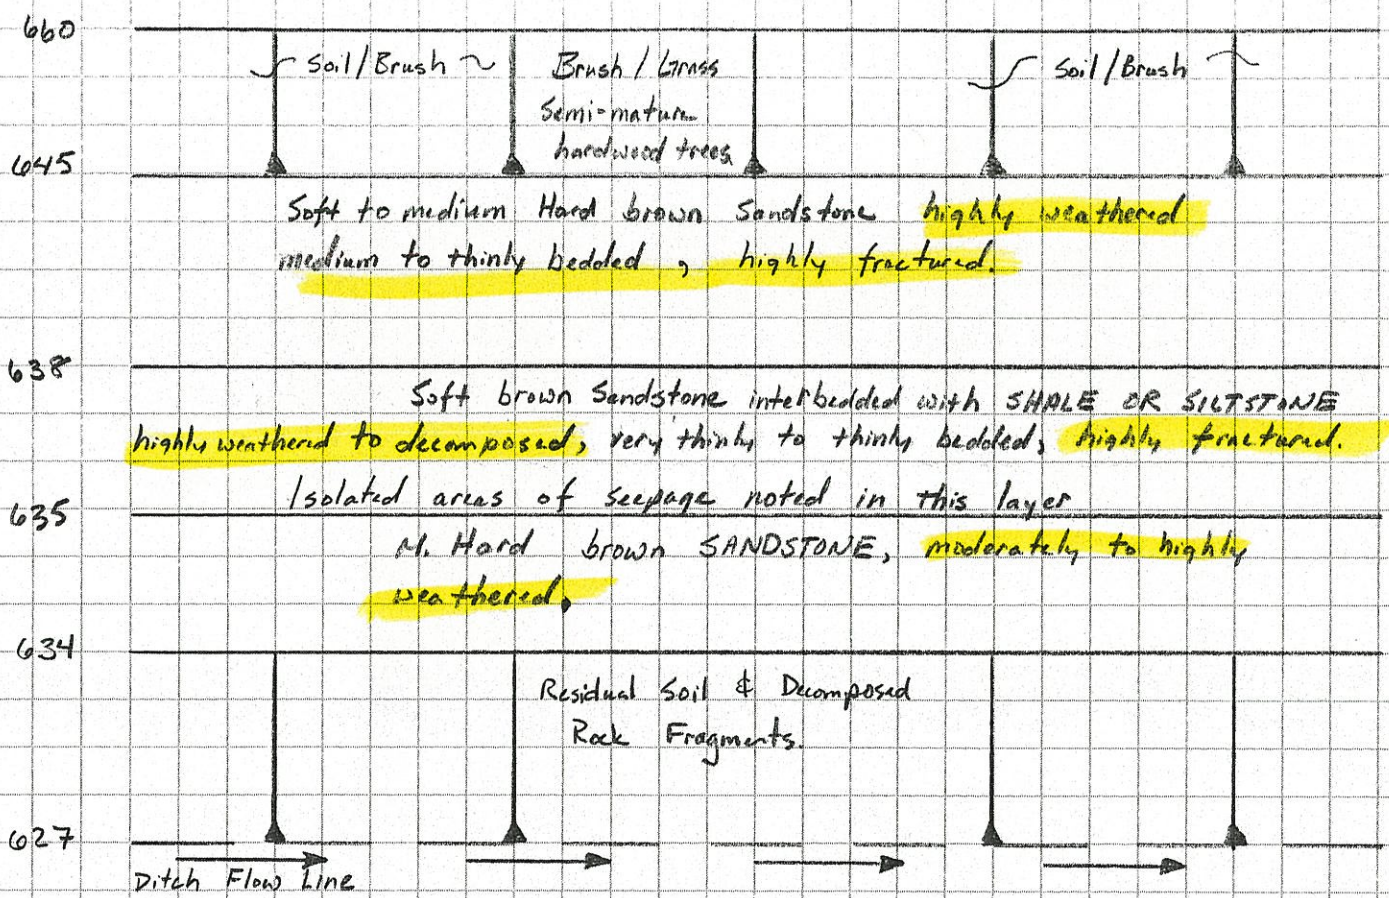 660
Soil/Brush
Brush / Grass
Soil/Brush
Semi-mature
hardwood trees
645
Soft to medium Hard brown Sandstone highly weathered
medium to thinly bedded, highly fractured.
638
Soft brown Sandstone interbedded with SHALE OR SILTSTONE
highly weathered to decomposed, very thinly to thinly bedded, highly fractured.
Isolated areas of seepage noted in this layer
635
M. Hard brown SANDSTONE, moderately to highly
weathered.
634
Residual Soil & Decomposed
Rock Fragments.
627
Ditch Flow Line